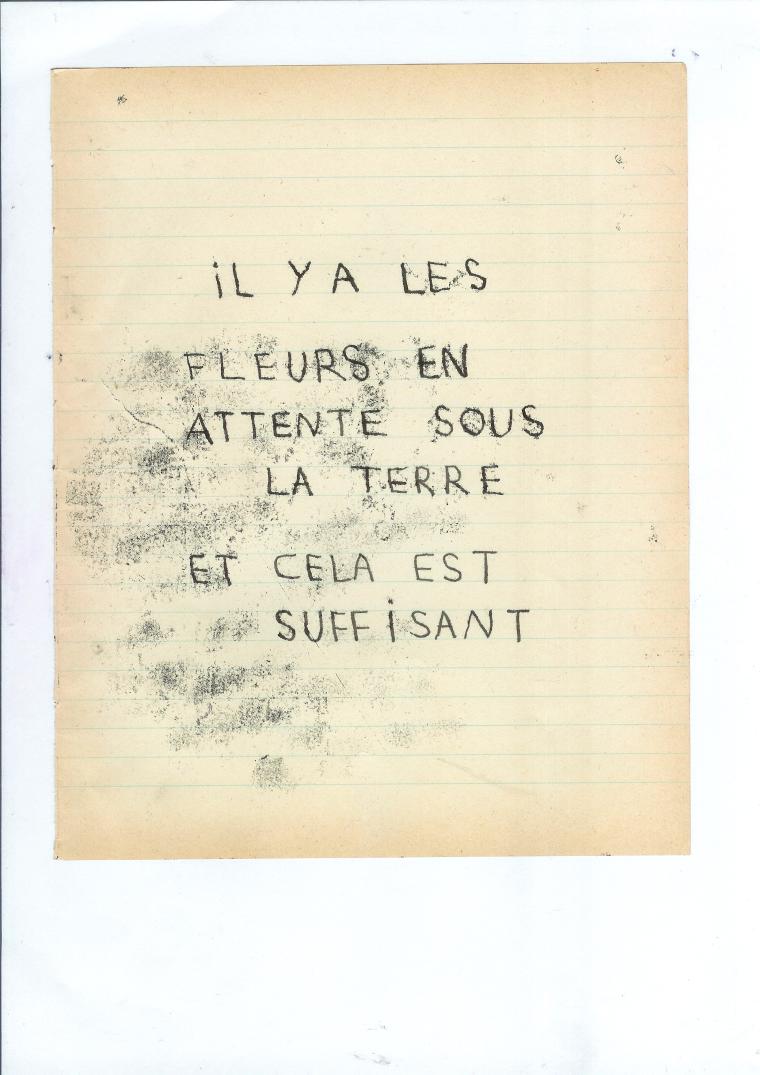 iL Y A LES
FLEURS EN
ATTENTE SOUS
LA TERRE
ET CELA EST
SUFFiSANT